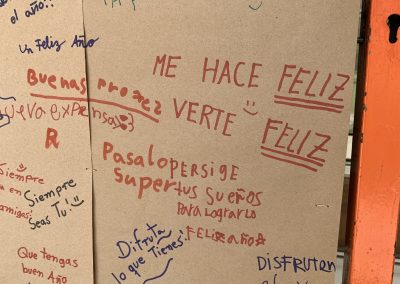 el año!!
Un Feliz Año
Buenas
R
Siempre
Siempre
Seas Tu!
Que tengas
buen Año
ME HACE FELIZ
VERTE FELIZ
Pasalo
Super
PERSIGE
tus SUEÑOS
PARA LOGRARLO
FELIZ año
Difruta
lo que Tienes
DISFRUTEN